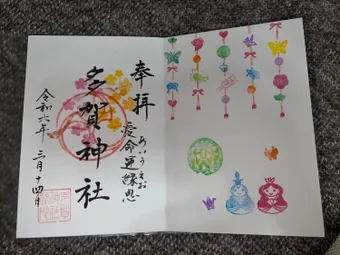 奉拝
愛命運縁恩
あいうえお
多賀神社
令和六年 三月十四日